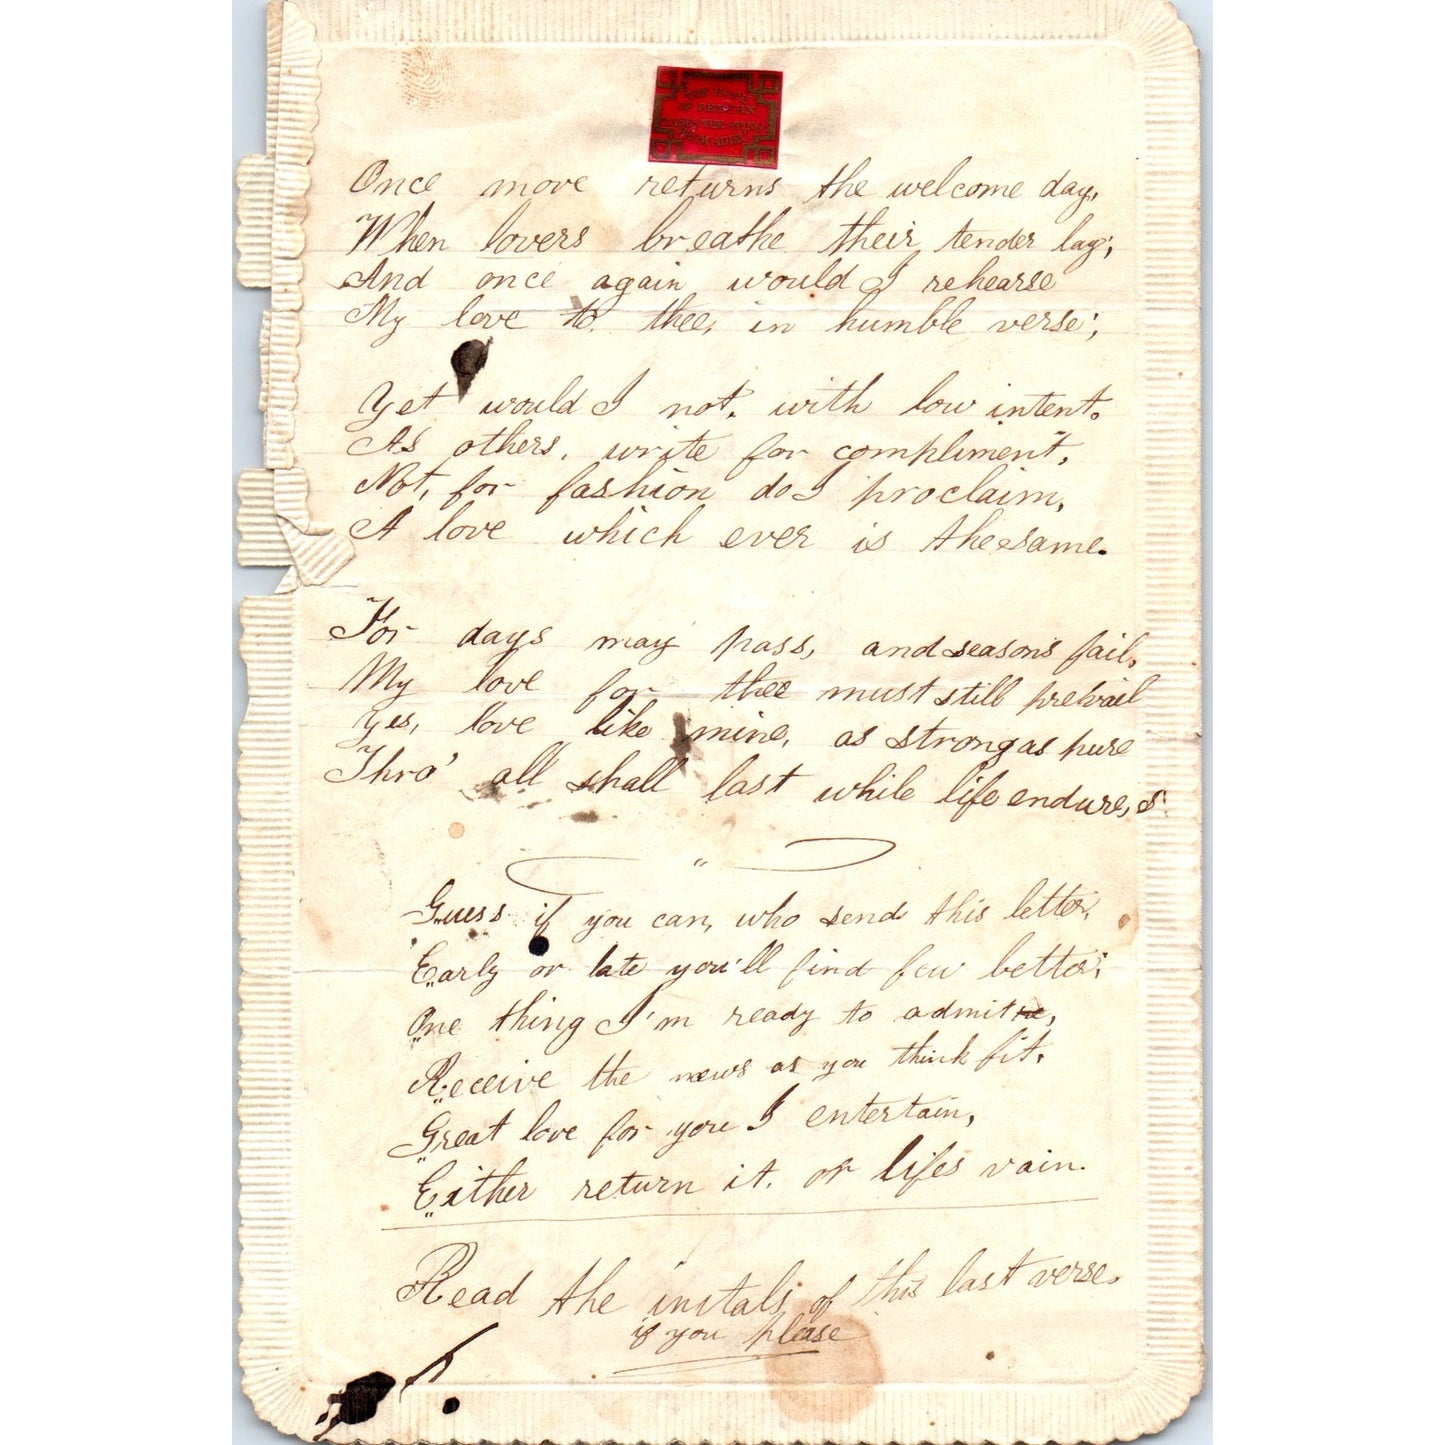 Once more returns the welcome day,
When lovers breathe their tender lay;
And once again would I rehearse
My love to thee, in humble verse;
Yet would I not, with low intent.
As others, write for compliment,
Not, for fashion do I proclaim,
A love which ever is the same.
For days may pass, and seasons fail,
My love for thee must still prevail
Yes, love like mine, as strong as pure
Thro' all shall last while life endure, s
"
Guess if you can, who send this letter,
Early or late you'll find few better;
One thing I'm ready to admit,
Receive the news as you think fit.
Great love for you I entertain,
Either return it. or lifes vain.
Read the initals of this last verse.
if you please